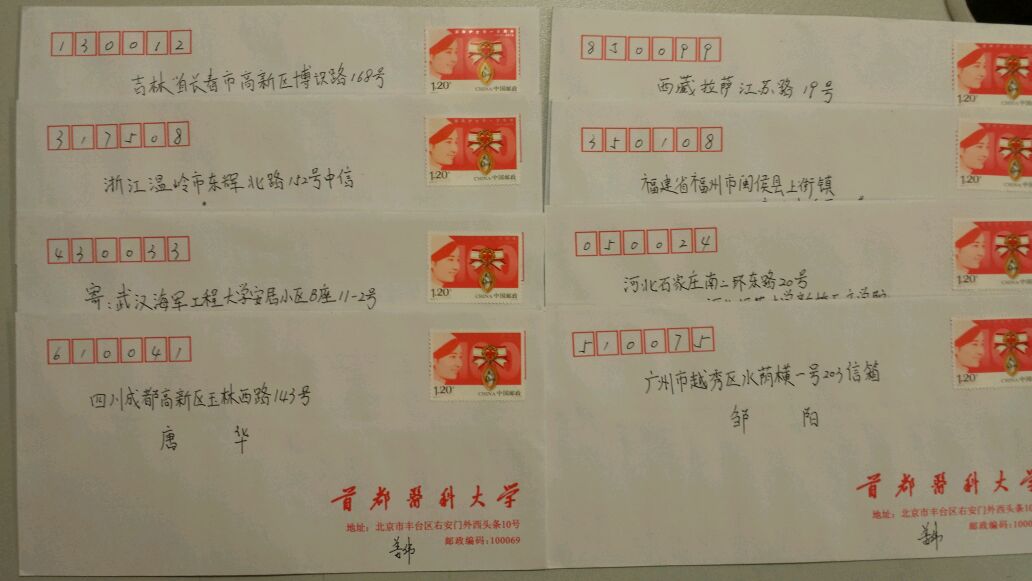 130012
吉林省长春市高新区博识路168号
1.20元
CHINA 中国邮政
317508
浙江温岭市东辉北路152号中信
1.20元
CHINA 中国邮政
430033
寄:武汉海军工程大学安居小区B座11-2号
1.20元
CHINA 中国邮政
610041
四川成都高新区玉林西路143号
唐华
1.20元
CHINA 中国邮政
首都医科大学
地址:北京市丰台区右安门外西头条10号
邮政编码:100069
850099
西藏拉萨江苏路19号
1.20元
350108
福建省福州市闽侯县上街镇
1.20元
050024
河北石家庄南二环东路20号
1.20元
510075
广州市越秀区水荫横一号203信箱
邹阳
1.20元
首都医科大学
地址:北京市丰台区右安门外西头条10
邮政编码:1000